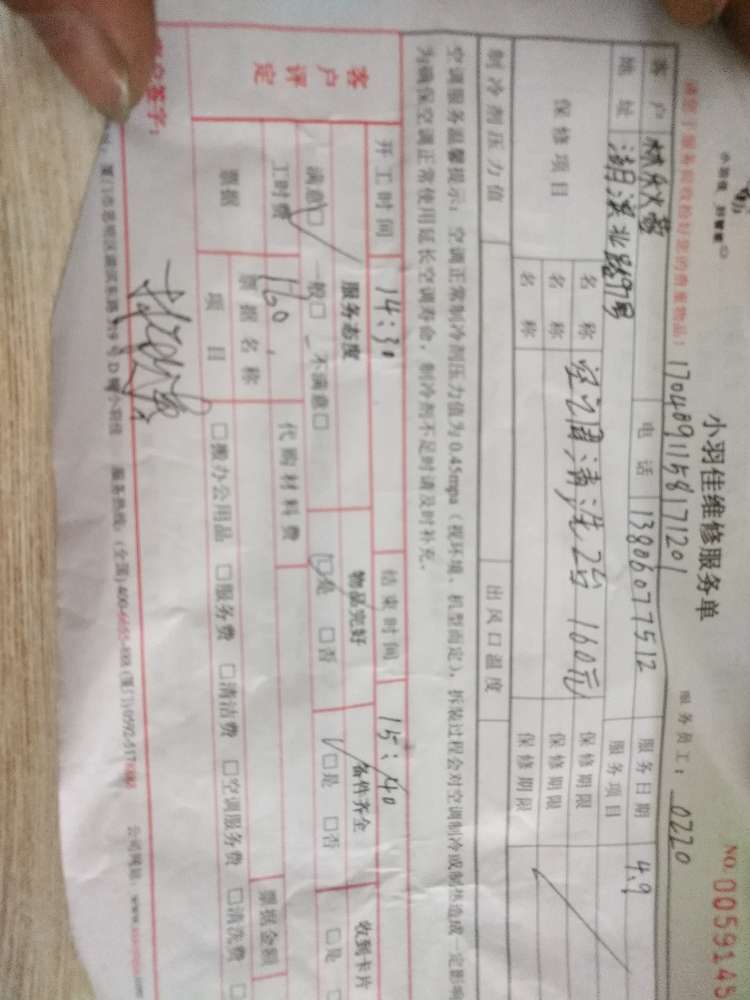 小羽佳维修服务单
NO.0059145
1704891158171201
服务员工：0220
客户 电话 13806077512 服务日期 4.9
地址 湖滨北路97号 服务项目
保修项目 名称 空调清洗2台 160元 保修期限
名称 保修期限
名称 保修期限
制冷剂压力值 出风口温度
空调服务温馨提示：空调正常制冷剂压力值为0.45mpa（视环境、机型而定），拆装过程会对空调制冷或制热造成一定影响
为确保空调正常使用延长空调寿命，制冷剂不足时请及时补充。
开工时间 14:30 结束时间 15:40
客户评定 服务态度 物品完好 备件齐全 收到卡片
满意□ 一般□ 不满意□ □是 □否 □是 □否 □是
工时费 160 代购材料费 票据金额
票据 票据名称
项目 □搬办公用品 □服务费 □清洁费 □空调服务费 □清洗费
客户签字：